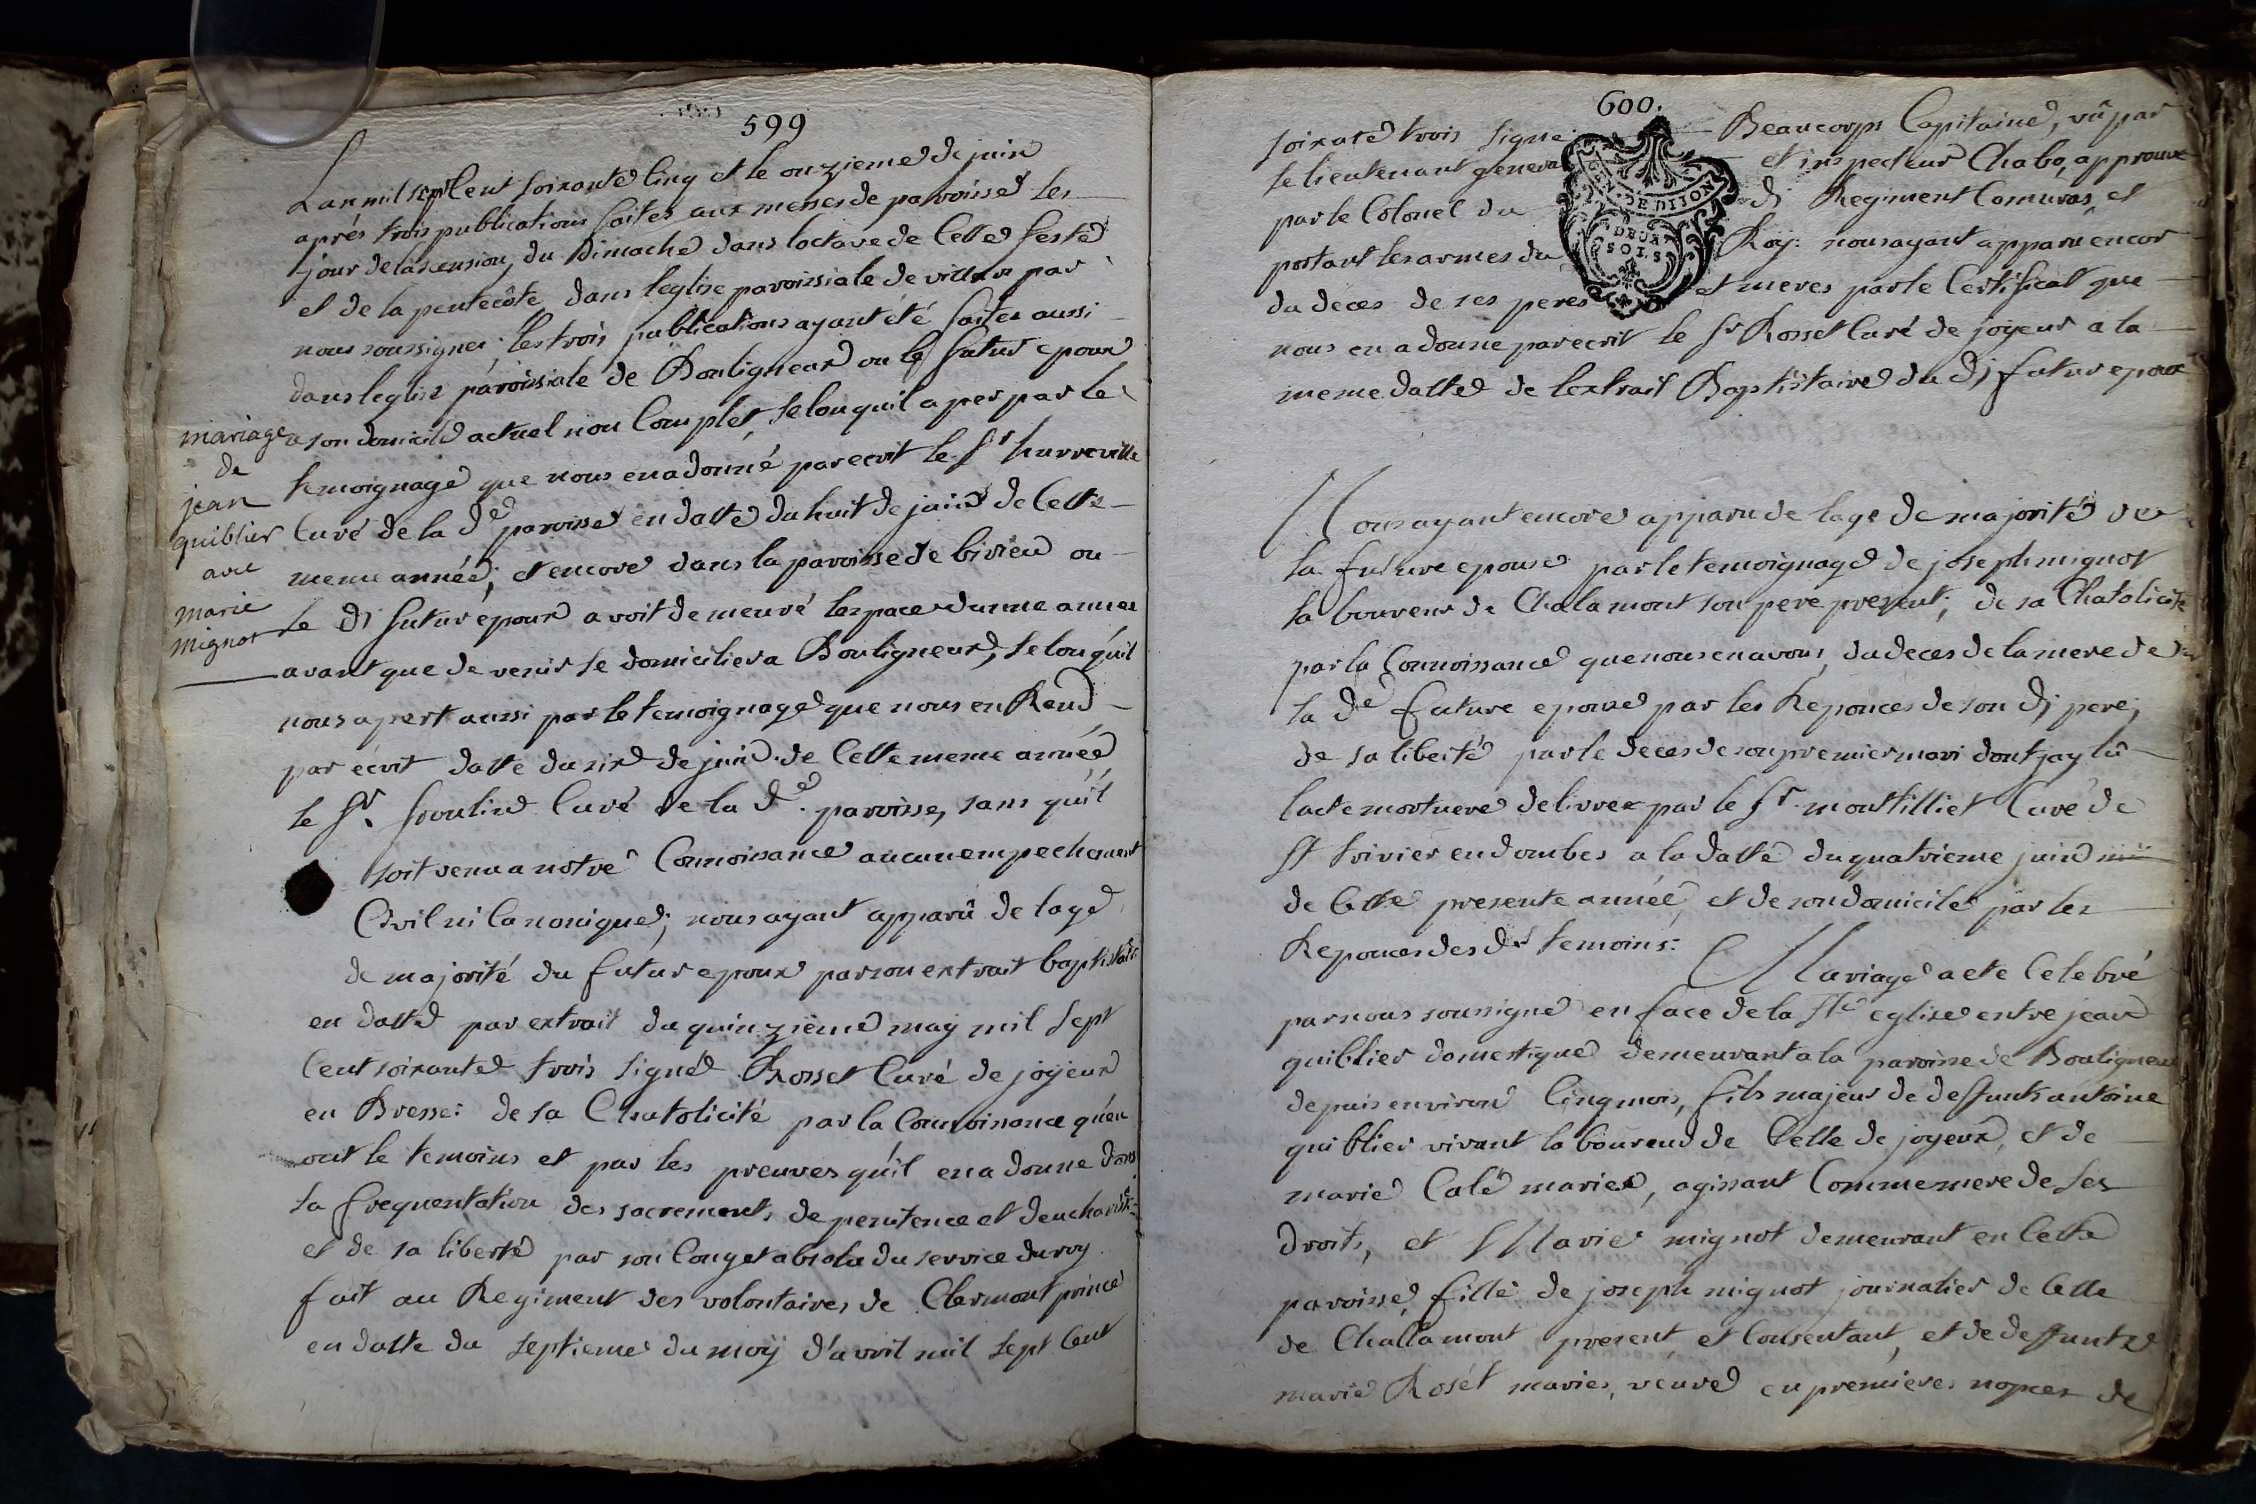 599
Lan mil sept Cent soixante Cinq et le onzieme de juin
aprés trois publications faites aux messes de paroisse les
jour de lascension, du Dimache dans loctave de Cette feste
et de la pentecôte dans leglise paroissiale de villars par
nous soussignes; les trois publications ayant été faites aussi
dans leglise paroissiale de Bouligneux ou le futur epoux
a son domicile actuel non Complet, selon quil a per par le
temoignage que nous en a donné par ecrit le Sr
Curé de la de paroisse en datte du huit de juin de Cette
meme année; et encore dans la paroisse de birieu ou
le dj futur époux avoit demeuré lespace dunne annee
avant que de venir se domicilier a Bouligneux; selon quil
nous apert aussi par le temoignage que nous en Rend
par écrit datte du six de juin de Cette meme année
le Sr. Curé de la de. paroisse, sans quil
soit venu a notre Connoissance aucun empechement
Civil ni Canonique; nous ayant apparû de lage
de majorité du futur epoux par son extrait baptistaire
en datte par extrait du quinzième may mil sept
Cent soixante trois signé Rosset Curé de joyeux
en Bresse: de sa Chatolicité par la Connoissance quen
ont le temoins et par les preuves quil en a donne dans
la frequentation des sacrements de penitence et deucharistie
et de sa liberté par son Conget absolu du service du roy
fait au Regiment des volontaires de Clermont prince
en datte du septieme du moy d'avril mil sept Cent
mariage
de
jean
quiblier
avec
marie
mignot
600.
soixate trois signe Beaucorps Capitaine, vû par
le lieutenant general et inspecteur Chabo, approuve
par le Colonel du dj Regiment Comeras, et
portant les armes du Roy: nous ayant apparu encor
du deces de ses peres et meres par le Certificat que
nous en a donne par ecrit le Sr Rosset Curé de joyeux a la
meme datte de lextrait Baptistaire du dj futur epoux
GEN. DE DIJON
DEUX
SOLS
Nous ayant encore apparu de lage de majorité de
la future epouse par le temoignage de joseph mignot
laboureur de Chalamont son pere present; de sa Chatolicité
par la Connoissance que nous en avons, du deces de la mere de
la de future epouse par les Reponces de son dj pere;
de sa liberté par le deces de son premier mari dont jay lû
lacte mortuere delivrer par le Sr. montilliet Curé de
St trivier en dombes a la datte du quatrieme juin
de Cette presente année, et de son domicile par les
Reponces des ds temoins:
Mariage a ete Celebré
par nous soussigné en face de la Ste eglise entre jean
quiblier domestique demeurant a la paroisse de Bouligneux
depuis environ Cinq mois, fils majeur de deffunt antoine
quiblier vivant laboureur de Celle de joyeux, et de
marie Calé maries, agissant Comme mere de ses
droits, et Marie mignot demeurant en Cette
paroisse, fille de joseph mignot journalier de Celle
de Challamont present et Consentant, et de deffunte
marie Rosét maries, veuve en premieres nopces de